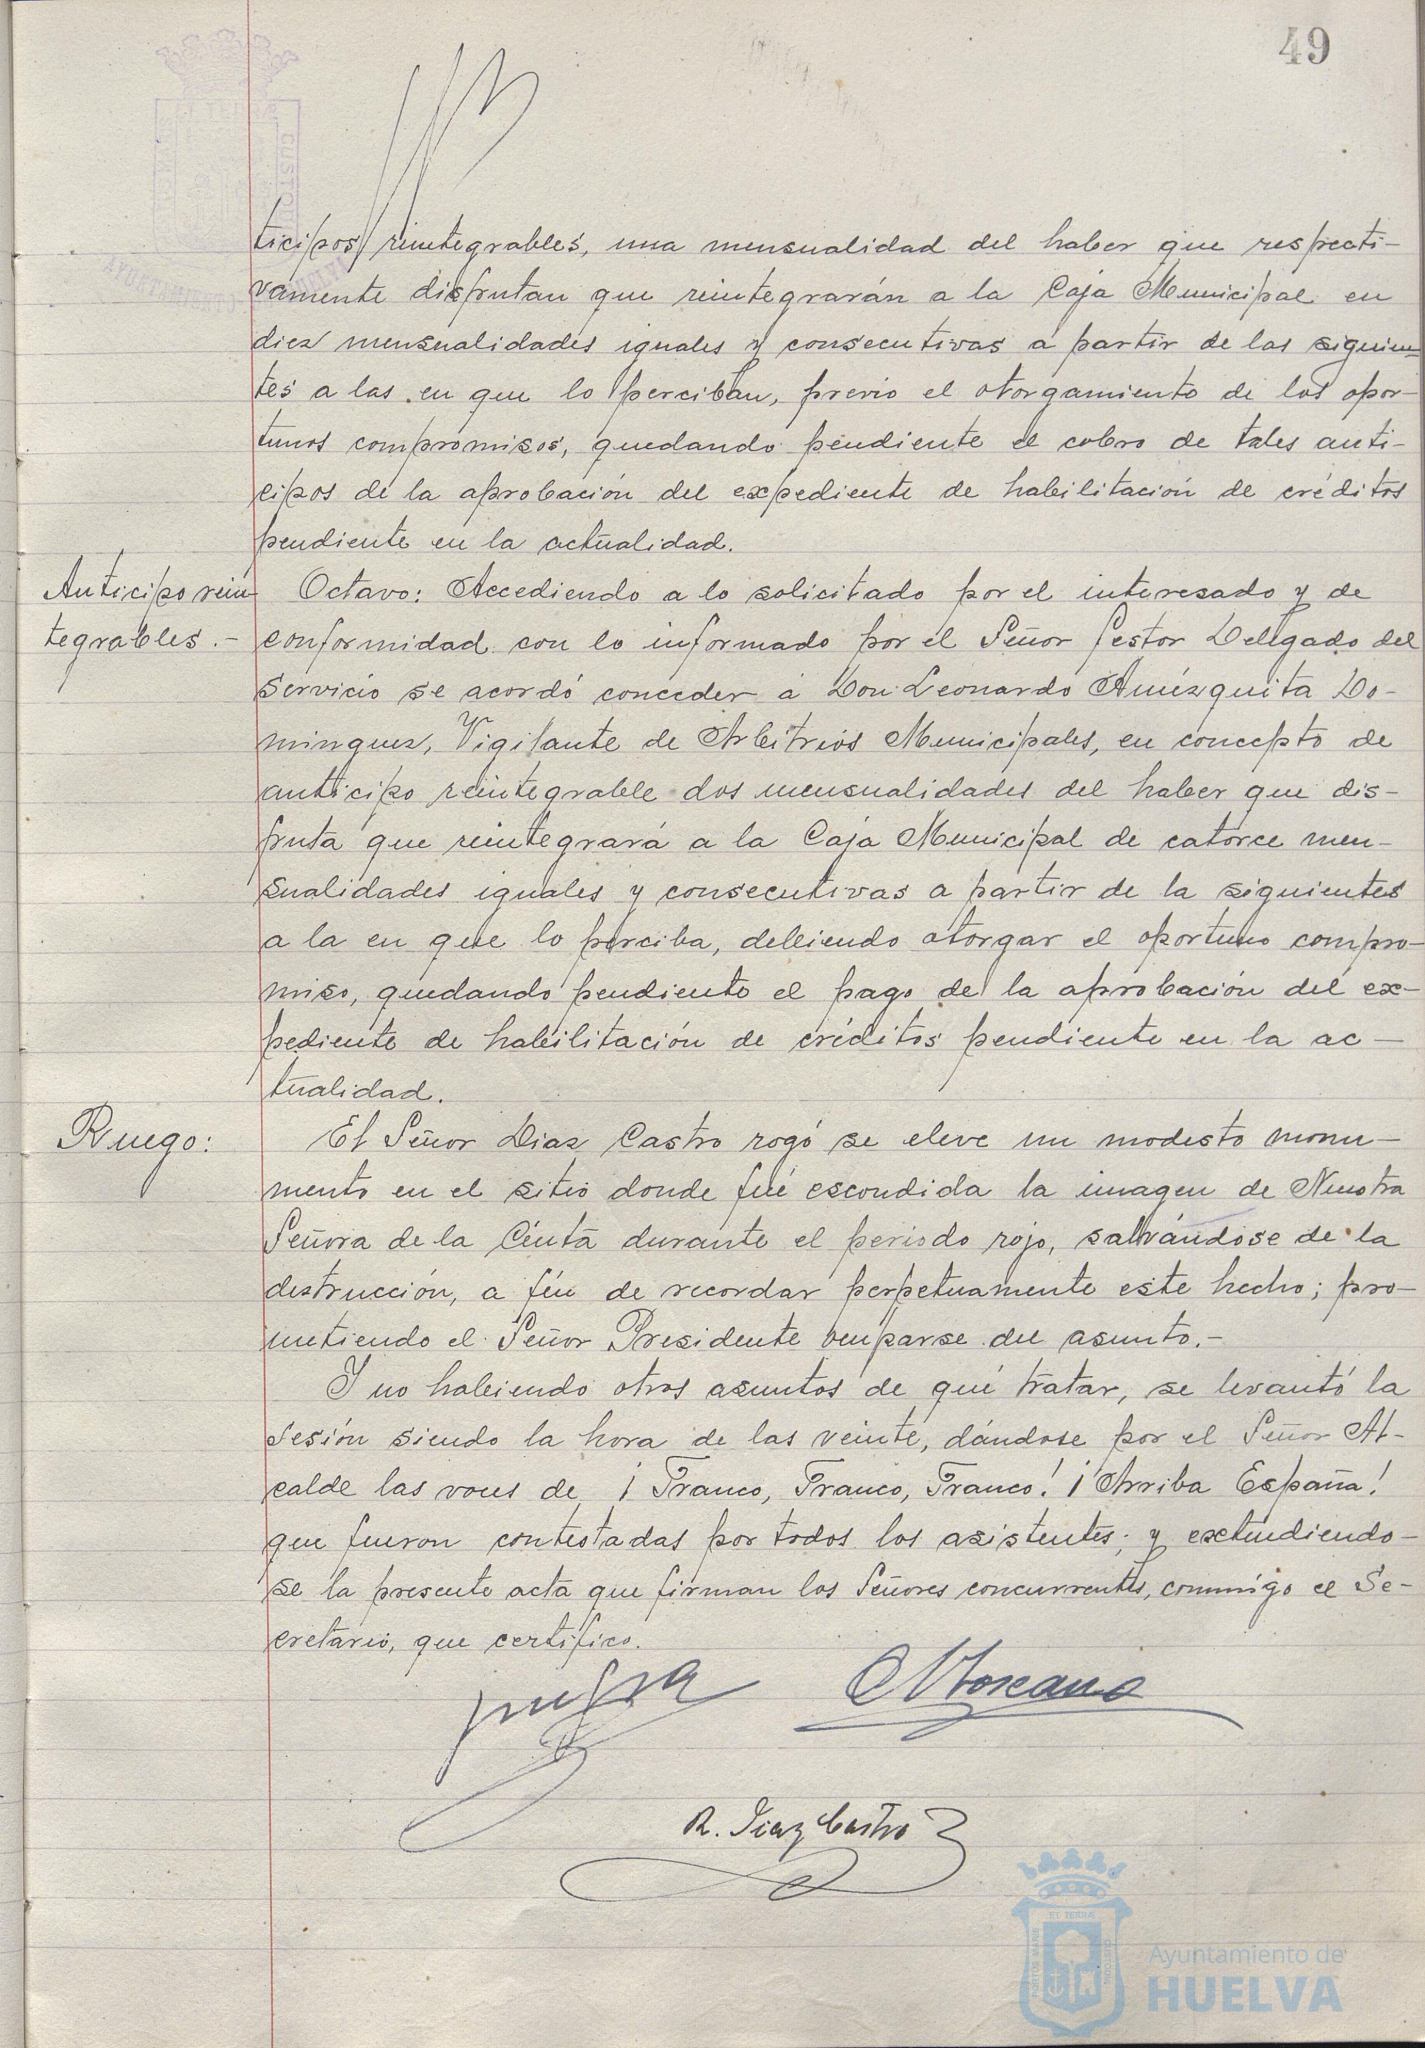 49
ticipos reintegrables, una mensualidad del haber que respecti-
vamente disfrutan que reintegrarán a la Caja Municipal en
diez mensualidades iguales y consecutivas a partir de las siguien-
tes a las en que lo perciban, previo el otorgamiento de los opor-
tunos compromisos, quedando pendiente el cobro de tales anti-
cipos de la aprobación del expediente de habilitación de créditos
pendiente en la actualidad.
Anticipo rein
tegrables.-
Octavo: Accediendo a lo solicitado por el interesado y de
conformidad con lo informado por el Señor Gestor Delegado del
Servicio se acordó conceder a Don Leonardo Amézquita Do-
minguez, Vigilante de Arbitrios Municipales, en concepto de
anticipo reintegrable dos mensualidades del haber que dis-
fruta que reintegrará a la Caja Municipal de catorce men-
sualidades iguales y consecutivas a partir de la siguientes
a la en que lo perciba, debiendo otorgar el oportuno compro-
miso, quedando pendiente el pago de la aprobación del ex-
pediente de habilitación de créditos pendiente en la ac-
tualidad.
Ruego:
El Señor Diaz Castro rogó se eleve un modesto monu-
mento en el sitio donde fué escondida la imagen de Nuestra
Señora de la Cinta durante el periodo rojo, salvándose de la
destrucción, a fin de recordar perpetuamente este hecho; pro-
metiendo el Señor Presidente ocuparse del asunto.-
Y no habiendo otros asuntos de qué tratar, se levantó la
Sesión siendo la hora de las veinte, dándose por el Señor Al-
calde las voces de ¡Franco, Franco, Franco! ¡Arriba España!
que fueron contestadas por todos los asistentes; y extendiendo-
se la presente acta que firman los Señores concurrentes, conmigo el Se-
cretario, que certifico.
R. Diaz Castro
Ayuntamiento de
HUELVA